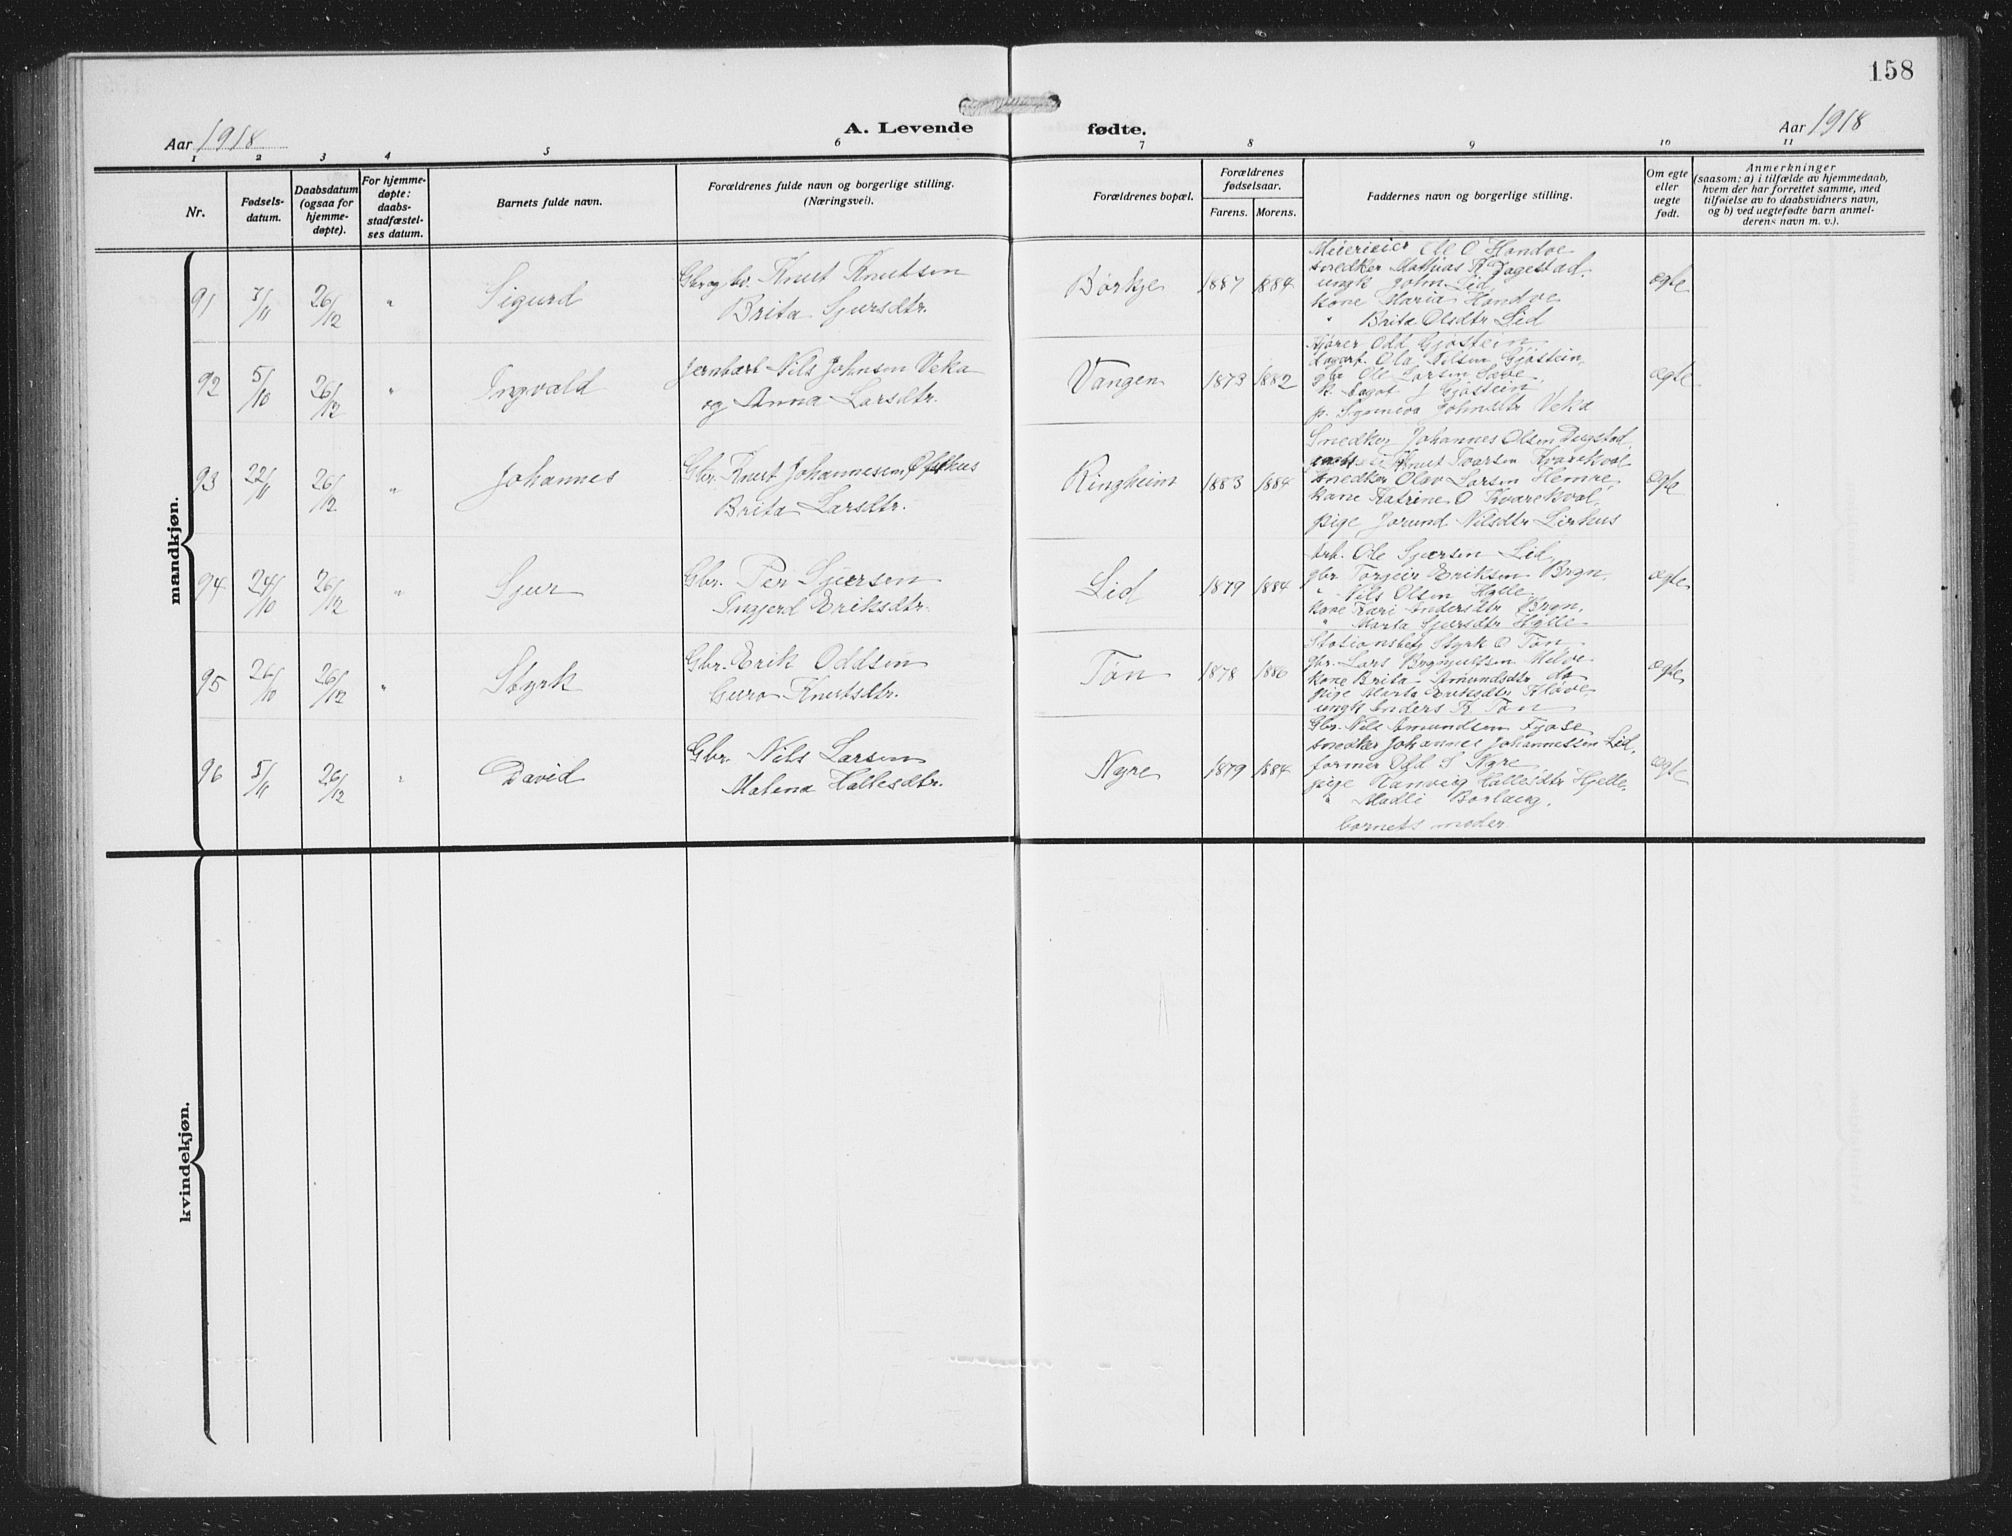 158
Aar 1918
A. Levende fødte.
Aar 1918
1 2 3 4 5 6 7 8 9 10 11
Nr.
Fødsels-
datum.
Daabsdatum
(ogsaa for
hjemme-
døpte).
For hjemme-
døpte:
daabs-
stadfæstel-
ses datum.
Barnets fulde navn.
Forældrenes fulde navn og borgerlige stilling.
(Næringsvei).
Forældrenes bopæl.
Forældrenes
fødselsaar.
Farens. Morens.
Faddernes navn og borgerlige stilling.
Om egte
eller
uegte
født.
Anmerkninger
(saasom: a) i tilfælde av hjemmedaab,
hvem der har forrettet samme, med
tilføielse av to daabsvidners navn,
og b) ved uegtefødte barn anmel-
derens navn m. v.).
mandkjøn.
91 7/11 26/12 " Sigurd
Knut Knutsen
Brita Sjursdtr.
Børkje 1887 1884
Meierieier Ole O Handve
snedker Mathias K Dagestad,
ungk John Lid,
kone Maria Handve
" Brita Olsdtr Lid
ægte
92 5/10 26/12 " Ingvald
Jernbarb Nils Johnsen Veka
og Anna Larsdtr.
Vangen 1873 1882
Odd Gjøstein,
Ola Nilsen Gjøstein,
gbr Ole Larsen
k. Dagot J Gjøstein
p. Synneva Johnsdtr Veka
ægte
93 22/11 26/12 " Johannes
Gbr. Knut Johannesen
Brita Larsdtr.
Ringheim 1883 1884
Snedker Johannes Olsen Dugstad,
Knut Ivarsen Kvarekval
snedker Olav Larsen Hemre,
kone Katrine O Kvarekval,
pige Jorund Nilsdtr Lirhus
ægte
94 24/10 26/12 " Sjur
Gbr. Per Sjursen
Ingjerd Eriksdtr.
Lid 1879 1884
arb. Ole Sjursen Lid,
gbr. Torgeir Eriksen Bryn,
" Nils Olsen Hylle
kone Kari Andersdtr Bryn,
" Marta Sjursdtr Hylle
ægte
95 26/10 26/12 " Styrk
Gbr. Erik Oddsen
Guro Knutsdtr.
Tøn 1878 1886
Stationsbetj Styrk O Tøn
gbr. Lars Brynjulfsen Melve
kone Brita Amundsdtr do
pige Marta Eriksdtr Kløve,
ungk Anders K Tøn
ægte
96 5/11 26/12 " David
Gbr. Nils Larsen
Malena Hallesdtr.
Nyre 1879 1884
Gbr. Nils Amundsen Fjose
snedker Johannes Johannessen Lid,
former Odd S Nyre
pige Ranveig Hallesdtr Hjelle,
" Madli
barnets moder.
ægte
kvindekjøn.